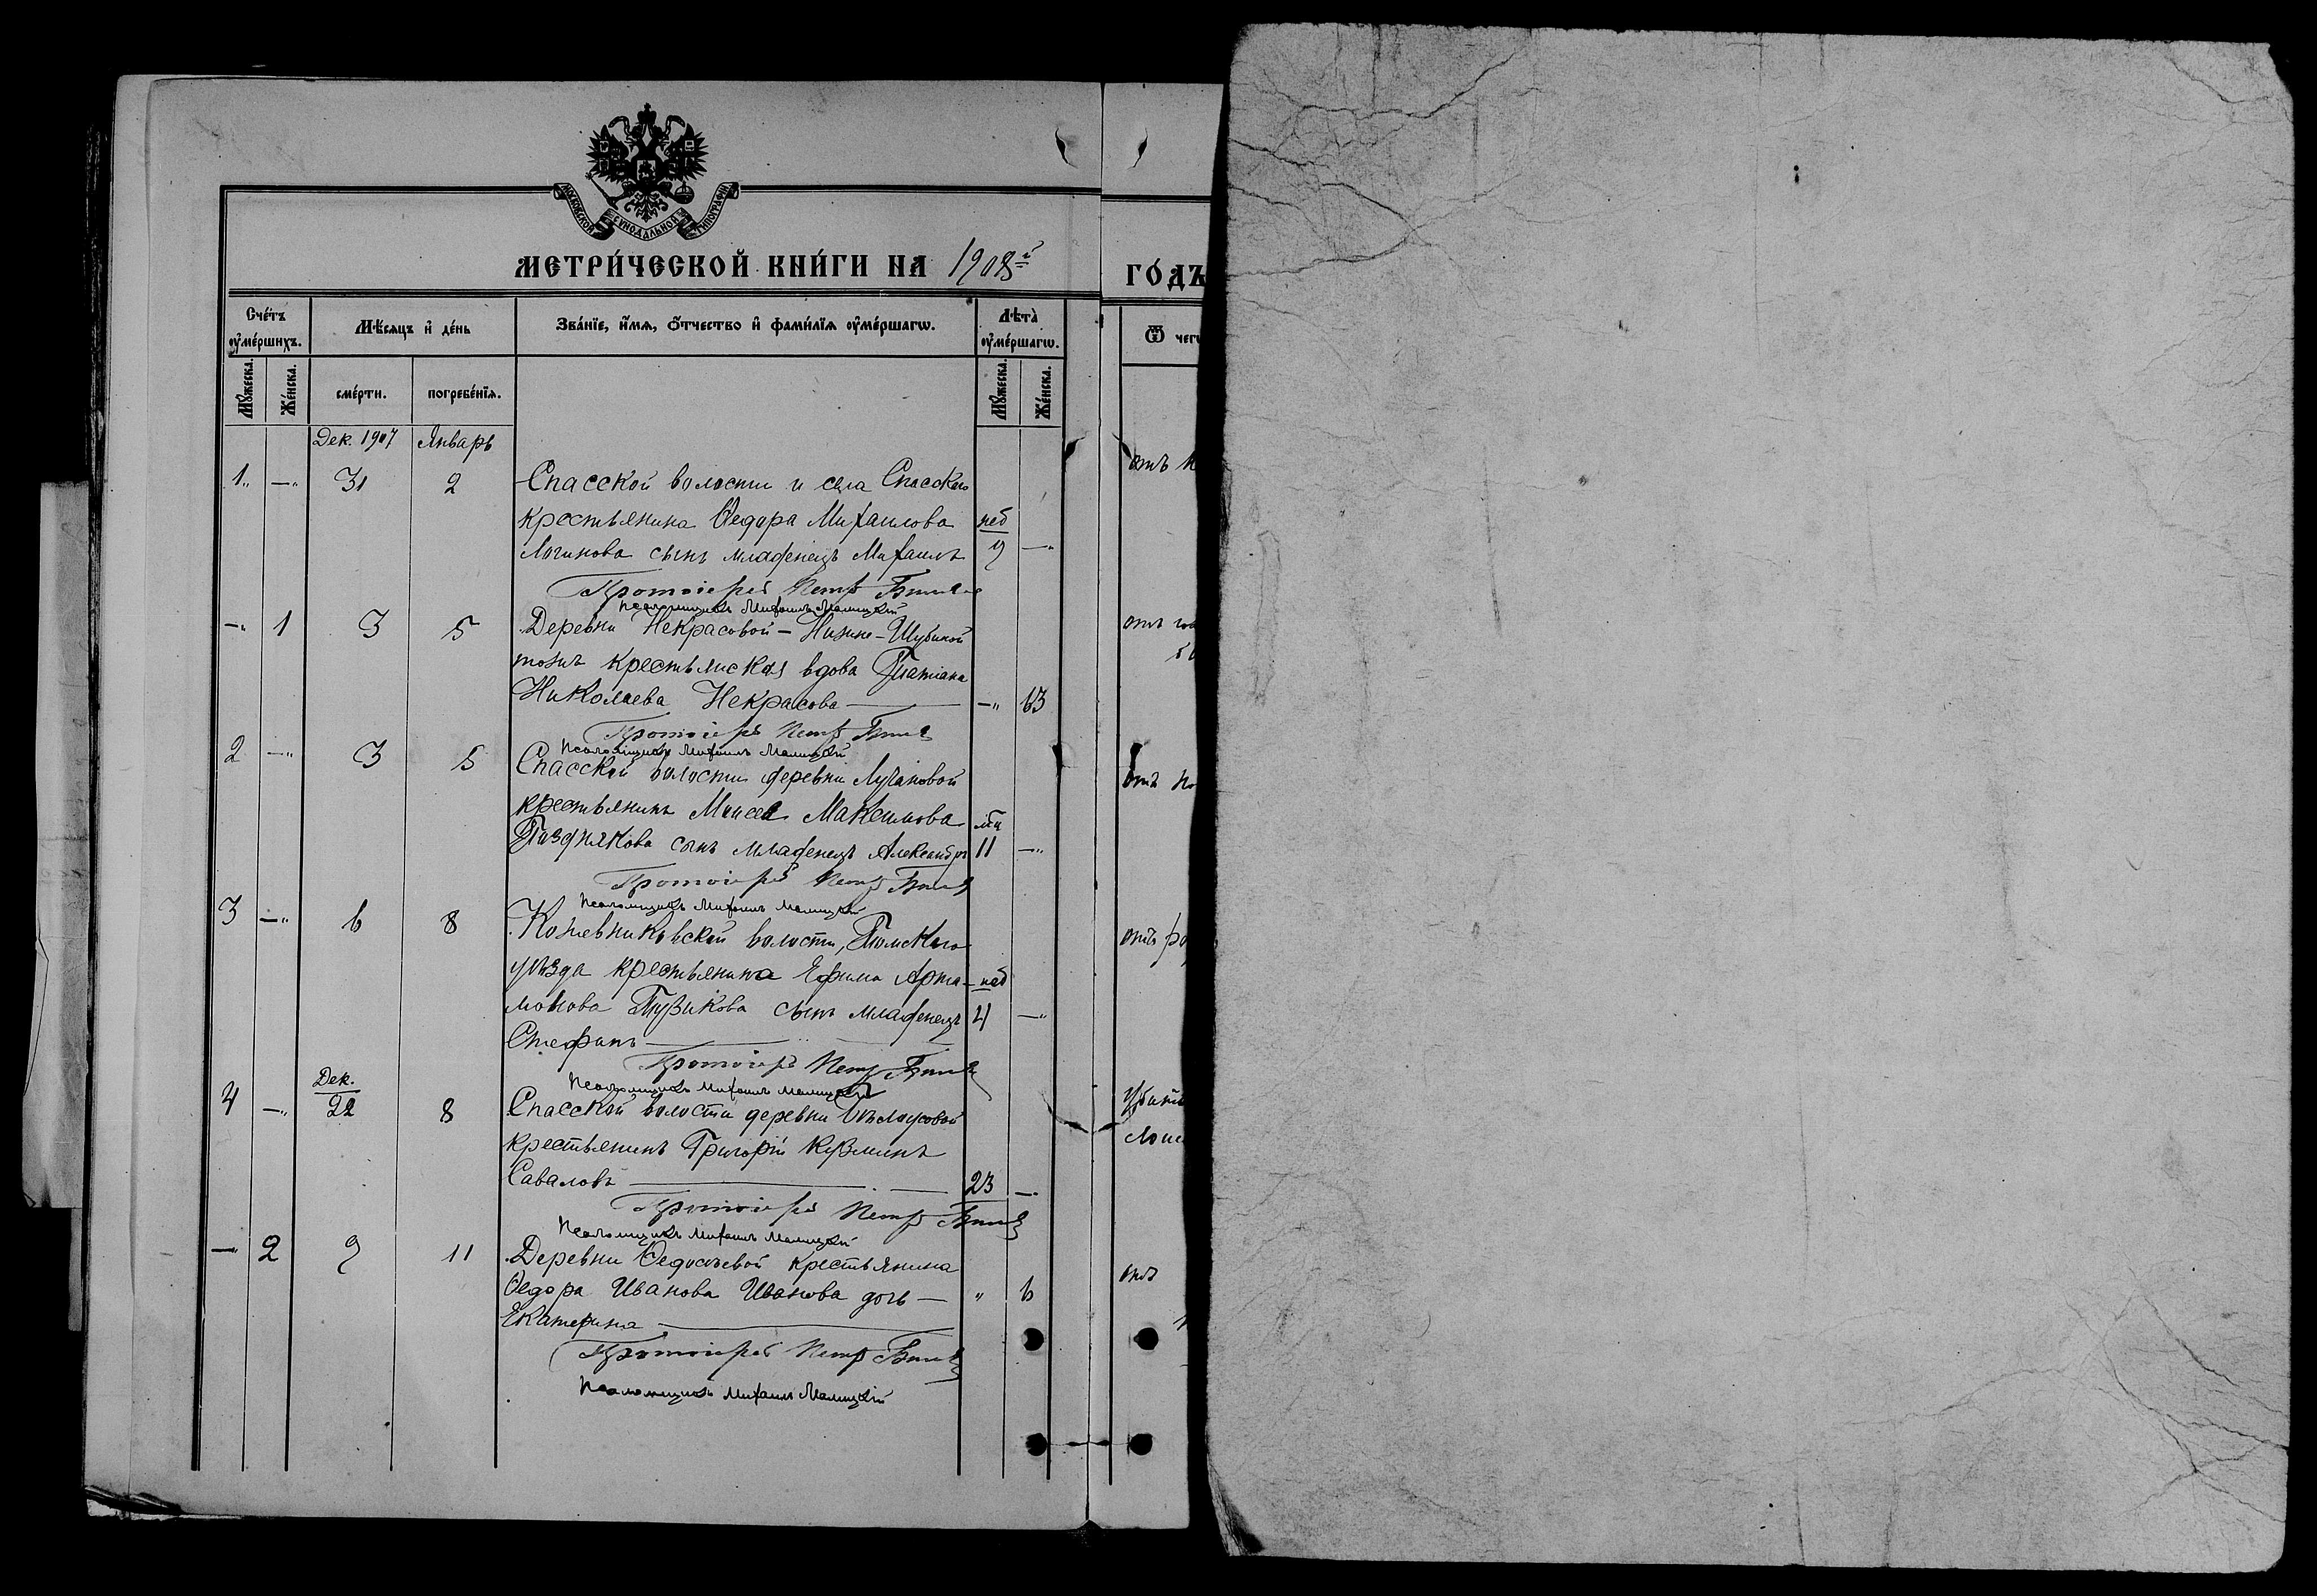 МОСКОВСКОЙ СѴНОДАЛЬНОЙ ТИПОГРАФІИ
МЕТРИ́ЧЕСКОЙ КНИ́ГИ НА 1908й
ГО́ДЪ
Сче́тъ ᲂу҆ме́ршихъ.
Мѣ́сяцъ и҆ де́нь
Зва́нїе, и҆́мѧ, ѻ҆́тчество и҆ фами́лїѧ ᲂу҆ме́ршагѡ.
Лѣта̀ ᲂу҆ме́ршагѡ.
Ѿ чегѡ
Мꙋ́жеска.
Же́нска.
сме́рти.
погребе́нїѧ.
Мꙋ́жеска.
Же́нска.
Дек. 1907 Январь
1.. —.. 31 2 Спасской волости и села Спасскаго
отъ
крестьянина Ѳедора Михаилова нед
Логинова сынъ младенецъ Михаилъ —..
Протоіерей Петръ
Псаломщикъ Михаилъ Малицкій
—.. 1 3 5 Деревни Некрасовой - Нижне-Шубиной
отъ
тожъ крестьянская вдова Татіана
Николаева Некрасова —.. 63
Протоіерей Петръ
Псаломщикъ Михаилъ Малицкій
2 —.. 3 5 Спасской волости деревни Лучановой
отъ
крестьянинъ Моисея Максимова мц
Позднякова сынъ младенецъ Александръ 11 —..
Протоіерей Петръ
Псаломщикъ Михаилъ Малицкій
3 —.. 6 8 Кожевниковской волости, Томскаго
отъ
уѣзда крестьянина Ефима Арта- нед
монова Пузикова сынъ младенецъ —..
Стефанъ
Протоіерей Петръ
Псаломщикъ Михаилъ Малицкій
Дек.
4 —.. 22 8 Спасской волости деревни Бѣлоусовой
крестьянинъ Григорій Кузминъ
Саваловъ 23 —..
Протоіерей Петръ
Псаломщикъ Михаилъ Малицкій
—.. 2 9 11 Деревни Ѳедосѣевой крестьянина
отъ
Ѳедора Иванова Иванова дочь — „ 6
Екатерина
Протоіерей Петръ
Псаломщикъ Михаилъ Малицкій